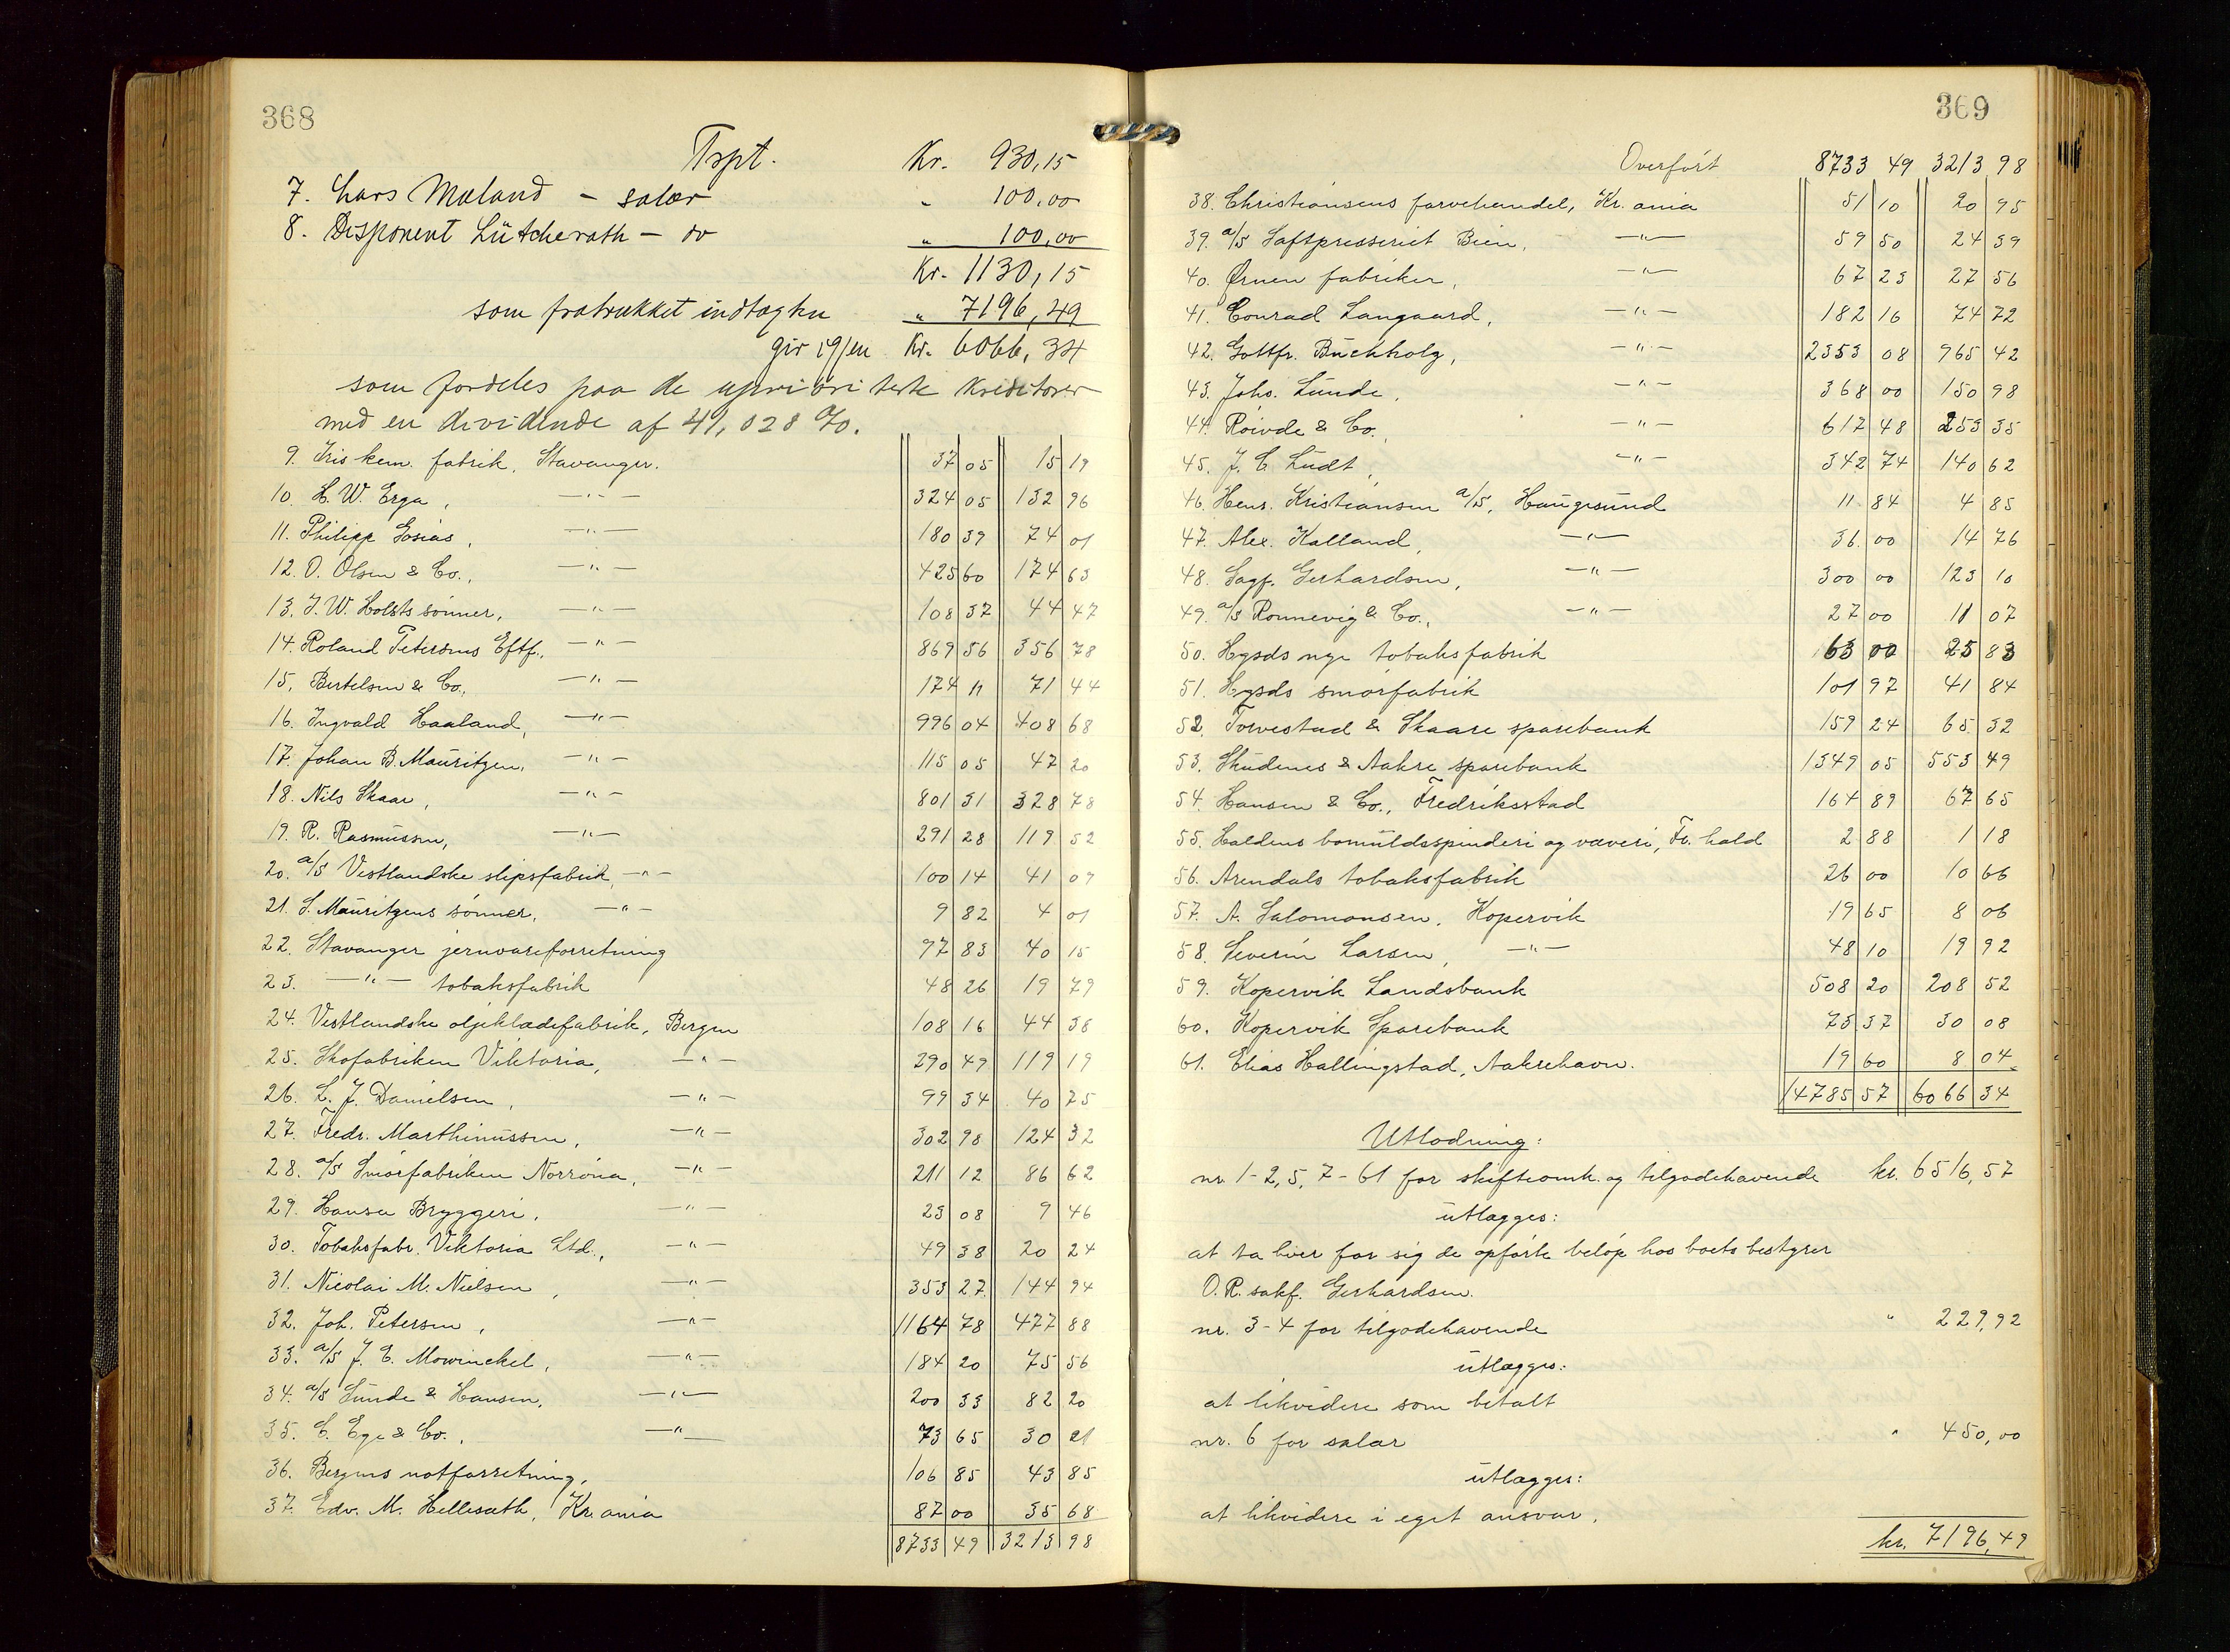 368
Trpt. Kr. 930,15
7. Lars Mæland - salær " 100,00
8. Disponent Lütcherath - do " 100,00
Kr. 1130,15
som fratrukket indtægten " 7196,49
gir igjen Kr. 6066,34
som fordeles paa de upriøriterte kreditorer
med en dividende af 41,028 %.
9. Iris kem. fabrik, Stavanger. 37 05 15 19
10. H. W. Erga, —"— 324 05 132 96
11. Philipp Gosias, —"— 180 39 74 01
12. O. Olsen & Co., —"— 425 60 174 63
13. J. W. Holsts sønner, —"— 108 37 44 47
14. Roland Petersens Eftf., —"— 869 56 356 78
15. Bertelsen & Co., —"— 174 11 71 44
16. Ingvald Haaland, —"— 996 04 408 68
17. Johan B. Mauritzen, —"— 115 05 47 20
18. Nils Skaar, —"— 801 31 328 78
19. R. Rasmussen, —"— 291 28 119 52
20. a/s Vestlandske slipsfabrik, —"— 100 14 41 09
21. S. Mauritzens sønner, —"— 9 82 4 01
22. Stavanger jernvareforretning 97 83 40 15
23. —"— tobaksfabrik 48 26 19 79
24. Vestlandske oljeklædefabrik, Bergen 108 16 44 38
25. Skofabriken Viktoria, —"— 290 49 119 19
26. L. J. Danielsen, —"— 99 34 40 75
27. Fredr. Marthinussen, —"— 302 98 124 32
28. a/s Smørfabriken Norrøna, —"— 211 12 86 62
29. Hansa Bryggeri, —"— 23 08 9 46
30. Tobaksfabr. Viktoria Ltd., —"— 49 38 20 24
31. Nicolai M. Nielsen, —"— 353 27 144 94
32. Joh. Petersen, —"— 1164 78 477 88
33. a/s J. E. Mowinckel, —"— 184 20 75 56
34. a/s Sunde & Hansen, —"— 200 33 82 20
35. C. Ege & Co., —"— 73 65 30 21
36. Bergens notforretning, 106 85 43 85
37. Edv. M. Hellesæth, Kr.ania 87 00 35 68
8733 49 3213 98
369
Overført 8733 49 3213 98
38. Christiansens farvehandel, Kr.ania 51 10 20 95
39. a/s Saftpresseriet Bien, —"— 59 50 24 39
40. Ørnen fabriker, —"— 67 23 27 56
41. Conrad Langaard, —"— 182 16 74 72
42. Gottfr. Buchholz, —"— 2353 08 965 42
43. Johs. Lunde, —"— 368 00 150 98
44. Roivde & Co., —"— 617 48 253 35
45. J. C. Ludt, —"— 342 74 140 62
46. Hens. Kristiansen a/s, Haugesund 11 84 4 85
47. Alex. Kalland, —"— 36 00 14 76
48. Sagf. Gerhardsen, —"— 300 00 123 10
49. a/s Rønnevig & Co., —"— 27 00 11 07
50. Hgsds nye tobaksfabrik 63 00 25 83
51. Hgsds smørfabrik 101 97 41 84
52. Torvestad & Skaare sparebank 159 24 65 32
53. Skudenes & Aakre sparebank 1349 05 553 49
54. Hansen & Co., Fredriksstad 164 89 67 65
55. Haldens bomuldsspinderi og væveri, Fr. hald 2 88 1 18
56. Arendals tobaksfabrik 26 00 10 66
57. A. Salomonsen, Kopervik 19 65 8 06
58. Severin Larsen, —"— 48 10 19 92
59. Kopervik Landsbank 508 20 208 52
60. Kopervik Sparebank 73 37 30 08
61. Elias Hallingstad, Aakrehavn. 19 60 8 04
14785 57 6066 34
Utlodning:
nr. 1-2, 5, 7-61 for skifteomk. og tilgodehavende kr. 6516,57
utlægges:
at ta hver for sig de opførte beløp hos boets bestyrer
O.R. sakf. Gerhardsen.
nr. 3-4 for tilgodehavende " 229,92
utlægges:
at likvidere som betalt
nr. 6 for salær " 450,00
utlægges:
at likvidere i eget ansvar.
kr. 7196,49